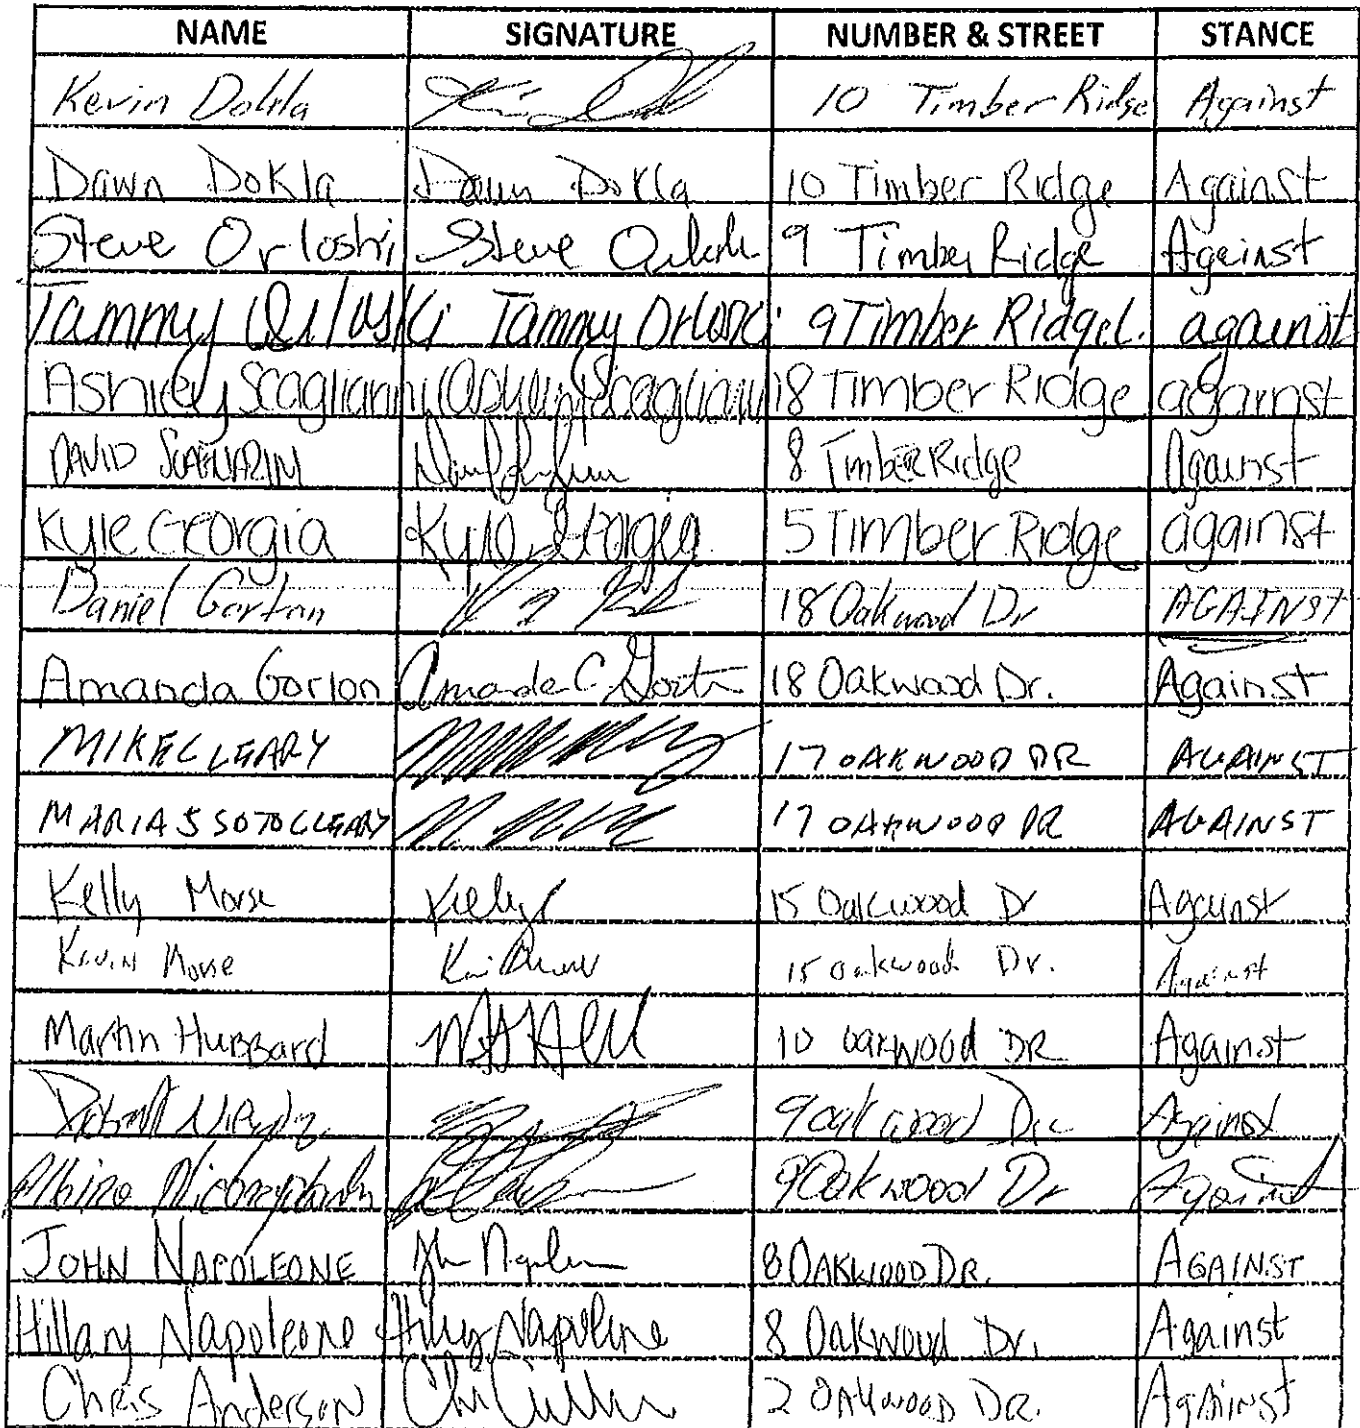 NAME SIGNATURE NUMBER & STREET STANCE
Kevin Dokla 10 Timber Ridge Against
Dawn Dokla Dawn Dokla 10 Timber Ridge Against
Steve Orloski Steve 9 Timber Ridge Against
Tammy Orloski Tammy Orloski 9 Timber Ridge against
Ashley Scaglianni Ashley Scaglianni 18 Timber Ridge against
DAVID 8 Timber Ridge Against
Kyle Georgia Kyle Georgia 5 Timber Ridge against
Daniel Gorton 18 Oakwood Dr AGAINST
Amanda Gorton Amanda C Gorton 18 Oakwood Dr. Against
MIKE CLEARY 17 OAKWOOD DR AGAINST
MARIA S SOTO CLEARY 17 OAKWOOD DR AGAINST
Kelly Morse Kelly 15 Oakwood Dr Against
Kevin Morse 15 Oakwood Dr. Against
Martin Hubbard 10 oakwood DR Against
9 oakwood Against
9 Oakwood Dr Against
JOHN NAPOLEONE 8 OAKWOOD DR. AGAINST
Hillary Napoleone Hillary Napoleone 8 Oakwood Dr. Against
Chris Anderson 2 OAKWOOD DR. Against